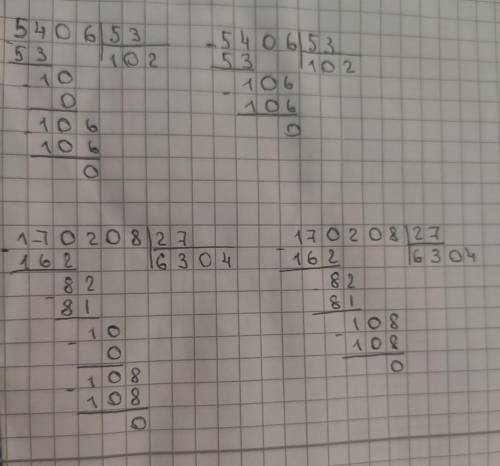 5406|53
-53 |102
-10
0
-106
106
0
-5406|53
53 |102
-106
106
0
-170208|27
162 |6304
-82
81
-10
0
-108
108
0
-170208|27
162 |6304
-82
81
-108
108
0